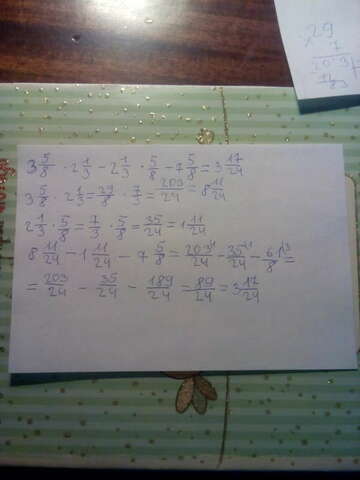 29
7
203
3 5/8 · 2 1/3 - 2 1/3 · 5/8 - 7 5/8 = 3 17/24
3 5/8 · 2 1/3 = 29/8 · 7/3 = 203/24 = 8 11/24
2 1/3 · 5/8 = 7/3 · 5/8 = 35/24 = 1 11/24
8 11/24 - 1 11/24 - 7 5/8 = 203/24 - 35/24 - 61/8 =
= 203/24 - 35/24 - 189/24 = 89/24 = 3 17/24